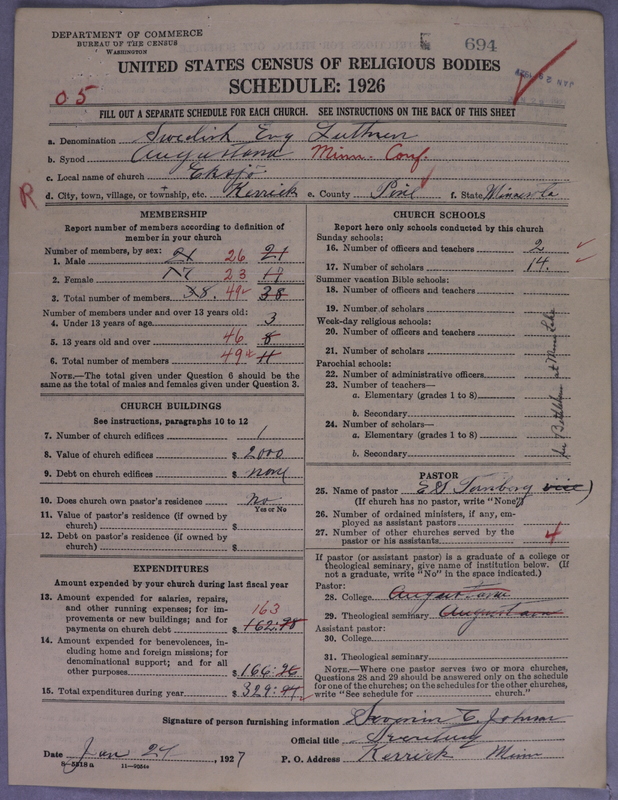 DEPARTMENT OF COMMERCE
BUREAU OF THE CENSUS
WASHINGTON
694
UNITED STATES CENSUS OF RELIGIOUS BODIES
SCHEDULE: 1926
05
FILL OUT A SEPARATE SCHEDULE FOR EACH CHURCH. SEE INSTRUCTIONS ON THE BACK OF THIS SHEET
a. Denomination Swedish Evg Luthren
b. Synod Augustana Minn. Conf.
c. Local name of church Eksjö
R
d. City, town, village, or township, etc. Kerrick e. County Pine f. State Minnesota
MEMBERSHIP
Report number of members according to definition of
member in your church
Number of members, by sex:
1. Male 21 26 21
2. Female 17 23 17
3. Total number of members 38. 49 38
Number of members under and over 13 years old:
4. Under 13 years of age 3
5. 13 years old and over 46 8
6. Total number of members 49 11
NOTE.—The total given under Question 6 should be the
same as the total of males and females given under Question 3.
CHURCH BUILDINGS
See instructions, paragraphs 10 to 12
7. Number of church edifices 1
8. Value of church edifices $ 2000
9. Debt on church edifices $ none
10. Does church own pastor's residence No
Yes or No
11. Value of pastor's residence (if owned by
church) $
12. Debt on pastor's residence (if owned by
church) $
EXPENDITURES
Amount expended by your church during last fiscal year
13. Amount expended for salaries, repairs,
and other running expenses; for im-
provements or new buildings; and for
payments on church debt 163 $ 162:78
14. Amount expended for benevolences, in-
cluding home and foreign missions; for
denominational support; and for all
other purposes $ 166:26
15. Total expenditures during year $ 329:
CHURCH SCHOOLS
Report here only schools conducted by this church
Sunday schools:
16. Number of officers and teachers 2
17. Number of scholars 14.
Summer vacation Bible schools:
18. Number of officers and teachers
19. Number of scholars
Week-day religious schools:
20. Number of officers and teachers
21. Number of scholars
Parochial schools:
22. Number of administrative officers
23. Number of teachers—
a. Elementary (grades 1 to 8)
b. Secondary
24. Number of scholars—
a. Elementary (grades 1 to 8)
b. Secondary
Bethlehem at
PASTOR
25. Name of pastor E G Ternberg
(If church has no pastor, write "None")
26. Number of ordained ministers, if any, em-
ployed as assistant pastors
27. Number of other churches served by the
pastor or his assistants 4
If pastor (or assistant pastor) is a graduate of a college or
theological seminary, give name of institution below. (If
not a graduate, write "No" in the space indicated.)
Pastor:
28. College Augustana
29. Theological seminary Augustana
Assistant pastor:
30. College
31. Theological seminary
NOTE.—Where one pastor serves two or more churches,
Questions 28 and 29 should be answered only on the schedule
for one of the churches; on the schedules for the other churches,
write "See schedule for church."
Signature of person furnishing information Severin E. Johnson
Official title Secretary
Date Jan 24, 1927 P. O. Address Kerrick Minn
8—5518 a 11—9054